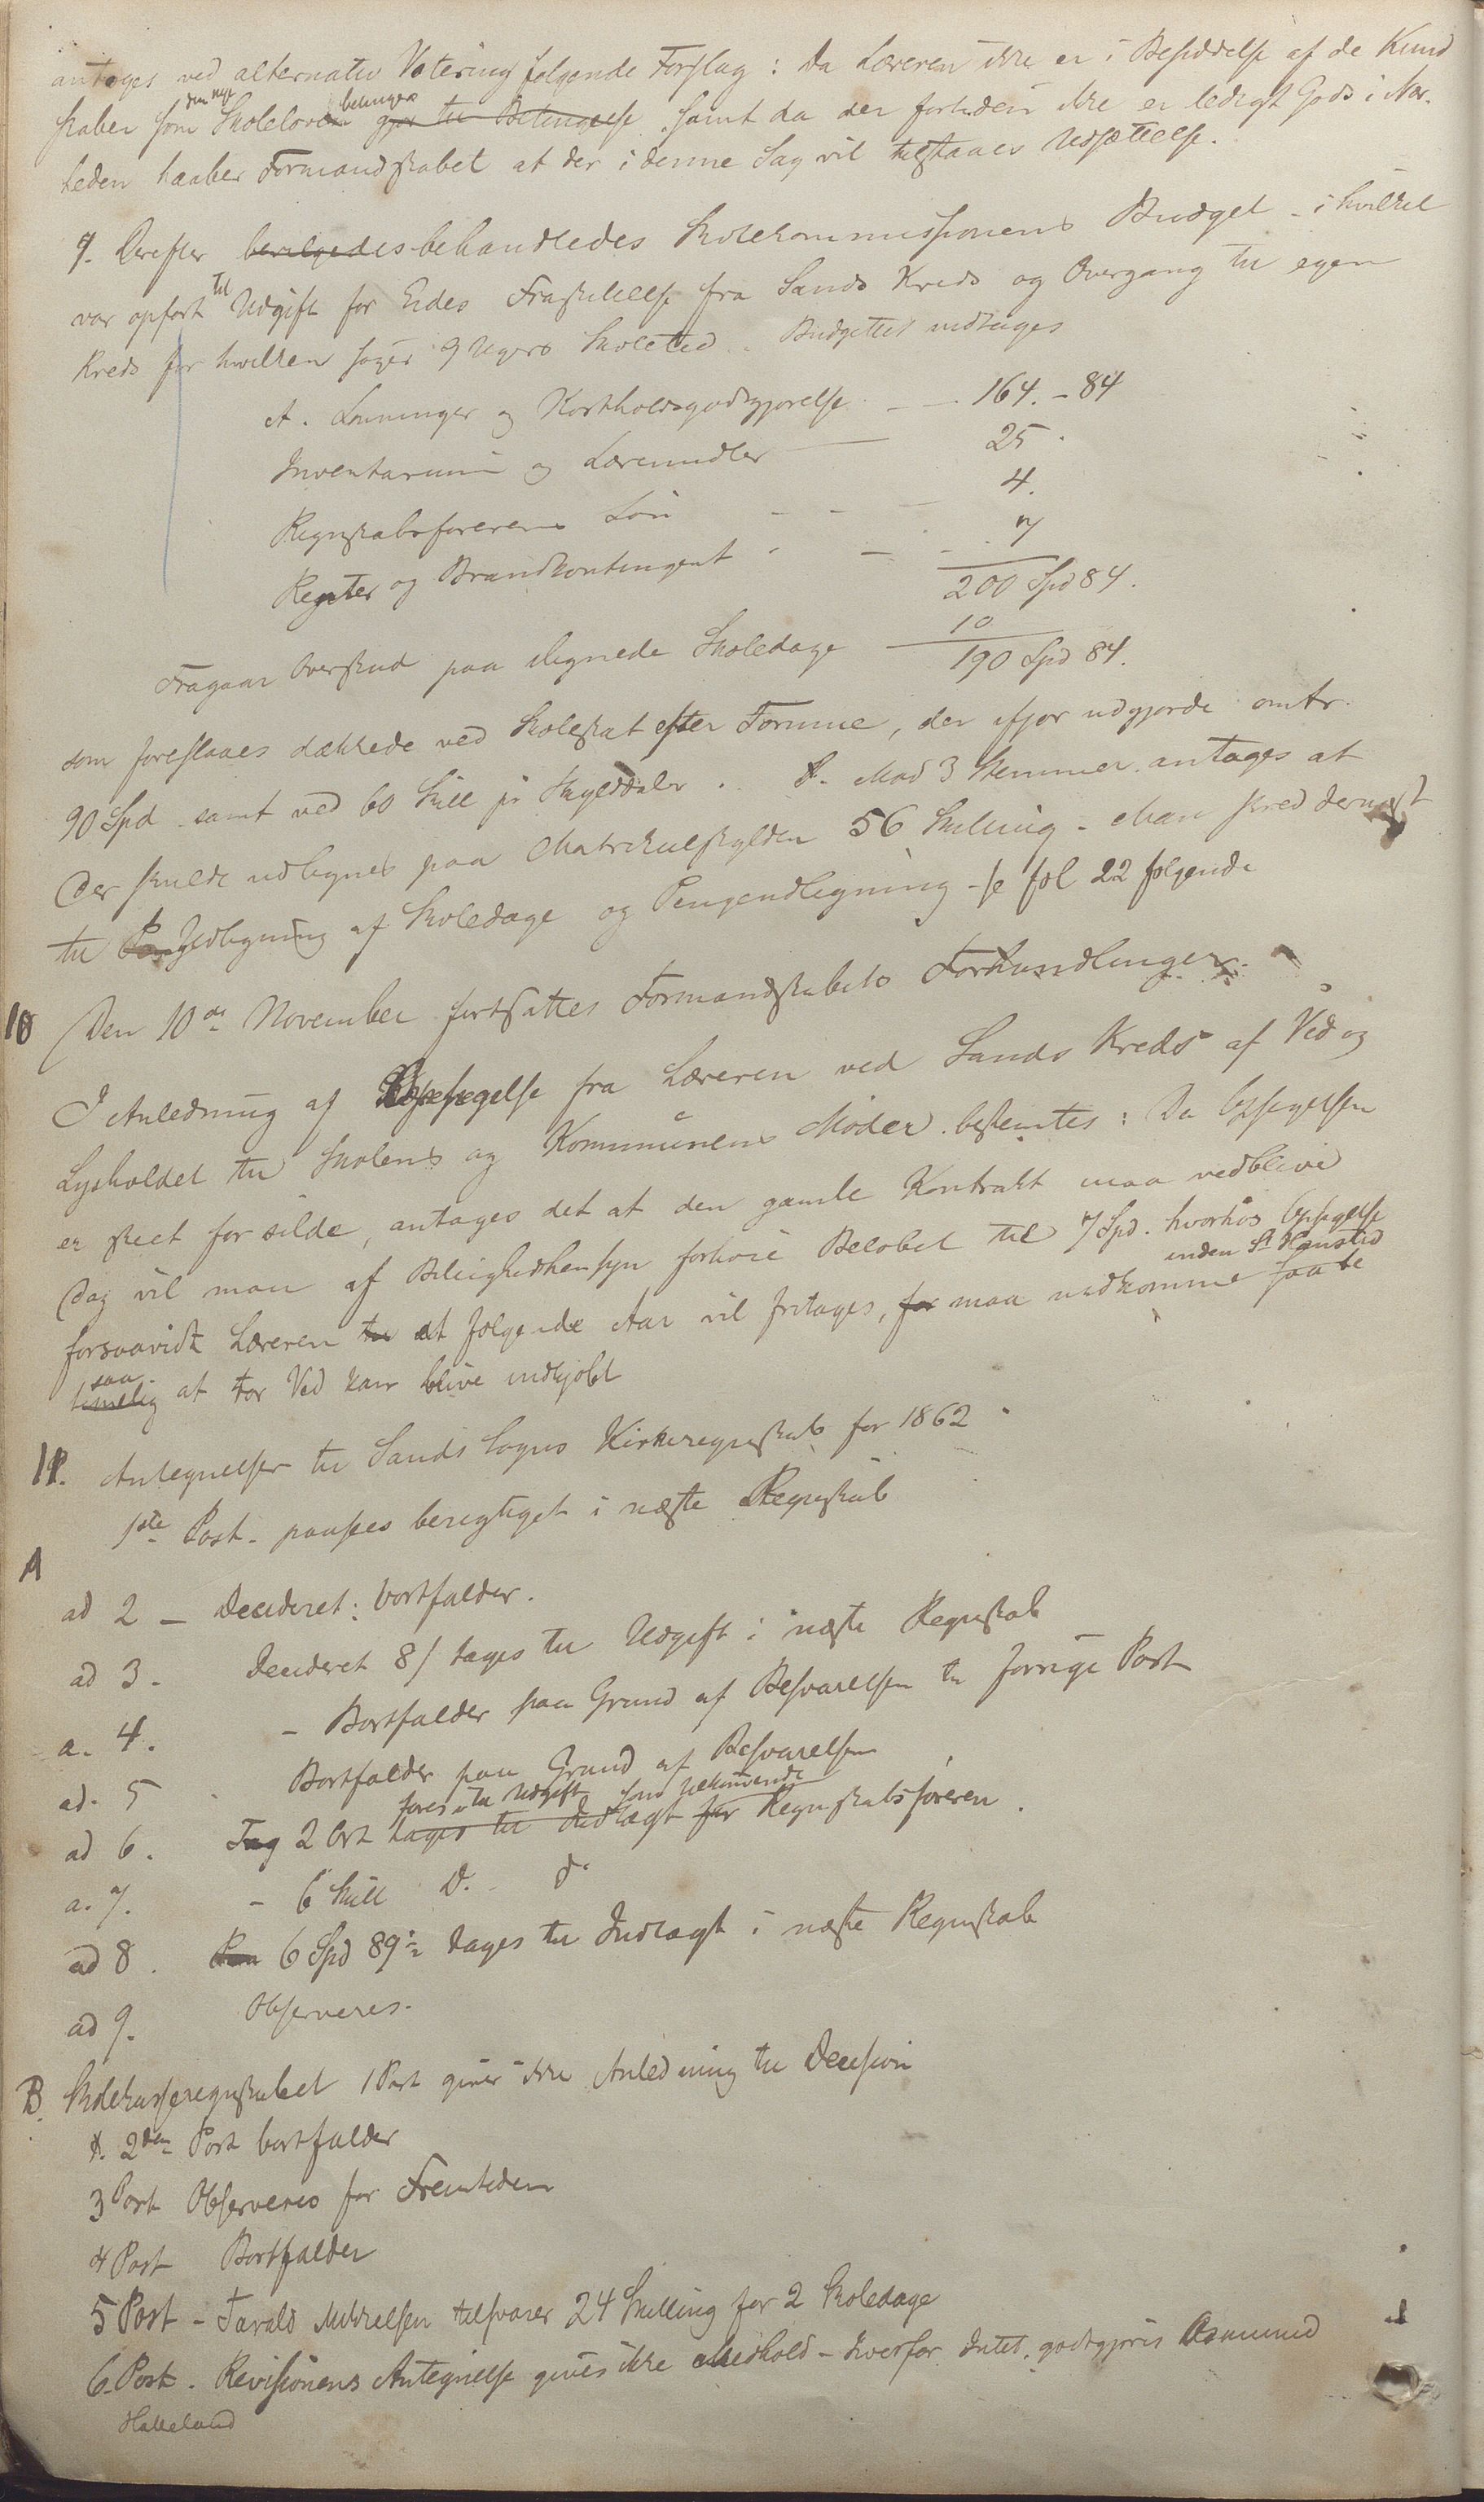 antages ved alternativ Votering følgende Forslag: Da Læreren ikke er i Besiddelse af de Kund
skaber som den nye Skoleloven betinger gjør til Betingelse, samt da der fortiden ikke er ledigt Gods i Nær-
heden haaber Formandskabet at der i denne Sag vil tilstaaes Udsættelse.
9. Derefter bevilgedes behandledes Skolekommissionens Budget - i hvilket
var opført til Udgift for Eides Fraskillelse fra Sands Kreds og Overgang til egen
Kreds for hvilken søges 9 Ugers Skoletid. Budgettet vedtages
A. Lønninger og Kostholdsgodtgjørelse - - 164. - 84
Inventarium og Læremidler - 25.
Regnskabsførerens Løn - - - 4.
Renter og Brandkontingent - - - 7
200 Spd 84.
Fragaar Overskud paa ilignede Skoledage - 10
190 Spd 84.
som foreslaaes dækkede ved Skoleskat efter Formue, der ifjor udgjorde omtr.
90 Spd samt ved 60 Skill pr Skylddaler. Mod 3 Stemmer antages at
Der skulde udlignes paa Matrikulskylden 56 Skilling - Man skred dernæst
til Udligning af Skoledage og Pengeudligning - se fol 22 følgende
10 Den 10de November fortsattes Formandskabets Forhandlinger.
I Anledning af Opsigelse fra Læreren ved Sands Kreds af Ved og
Lysholdet til Skolens og Kommunens Møder bestemtes: Da Opsigelsen
er skeet for silde, antages det at den gamle Kontrakt maa vedblive
Dog vil man af Billighedshensyn forhøie Beløbet til 7 Spd. hvorhos Opsigelse
forsaavidt Læreren til at følgende Aar vil fritages, for maa indkomme inden St Hanstid saa be
timelig saa at tør Ved kan blive indkjøbt
11. Antegnelser til Sands Sogns Kirkeregnskab for 1862
A
1ste Post - paasees berigtiget i næste Regnskab
ad 2 - Decideret: bortfalder.
ad 3. Decideret 8/ tages til Udgift i næste Regnskab
a. 4. - Bortfalder paa Grund af Besvarelsen til forrige Post
ad. 5 Bortfalder paa Grund af Besvarelsen
ad 6. Tag 2 Ort føres til Udgift tages til Indtægt for Regnskabsføreren.
a. 7. - 6 Skill D. d°
ad 8. 6 Spd 89 tages til Indtægt i næste Regnskab
ad 9. Observeres.
B. Skolekasseregnskabet 1 Post giver ikke Anledning til Decision
2den Post bortfalder
3 Post Observeres for Fremtiden
4 Post Bortfalder
5 Post - Tarald Mikkelsen tilsvarer 24 Skilling for 2 Skoledage
6. Post. Revisionens Antegnelse gives ikke Medhold - hvorfor Intet godtgjøres Asmund
Halleland